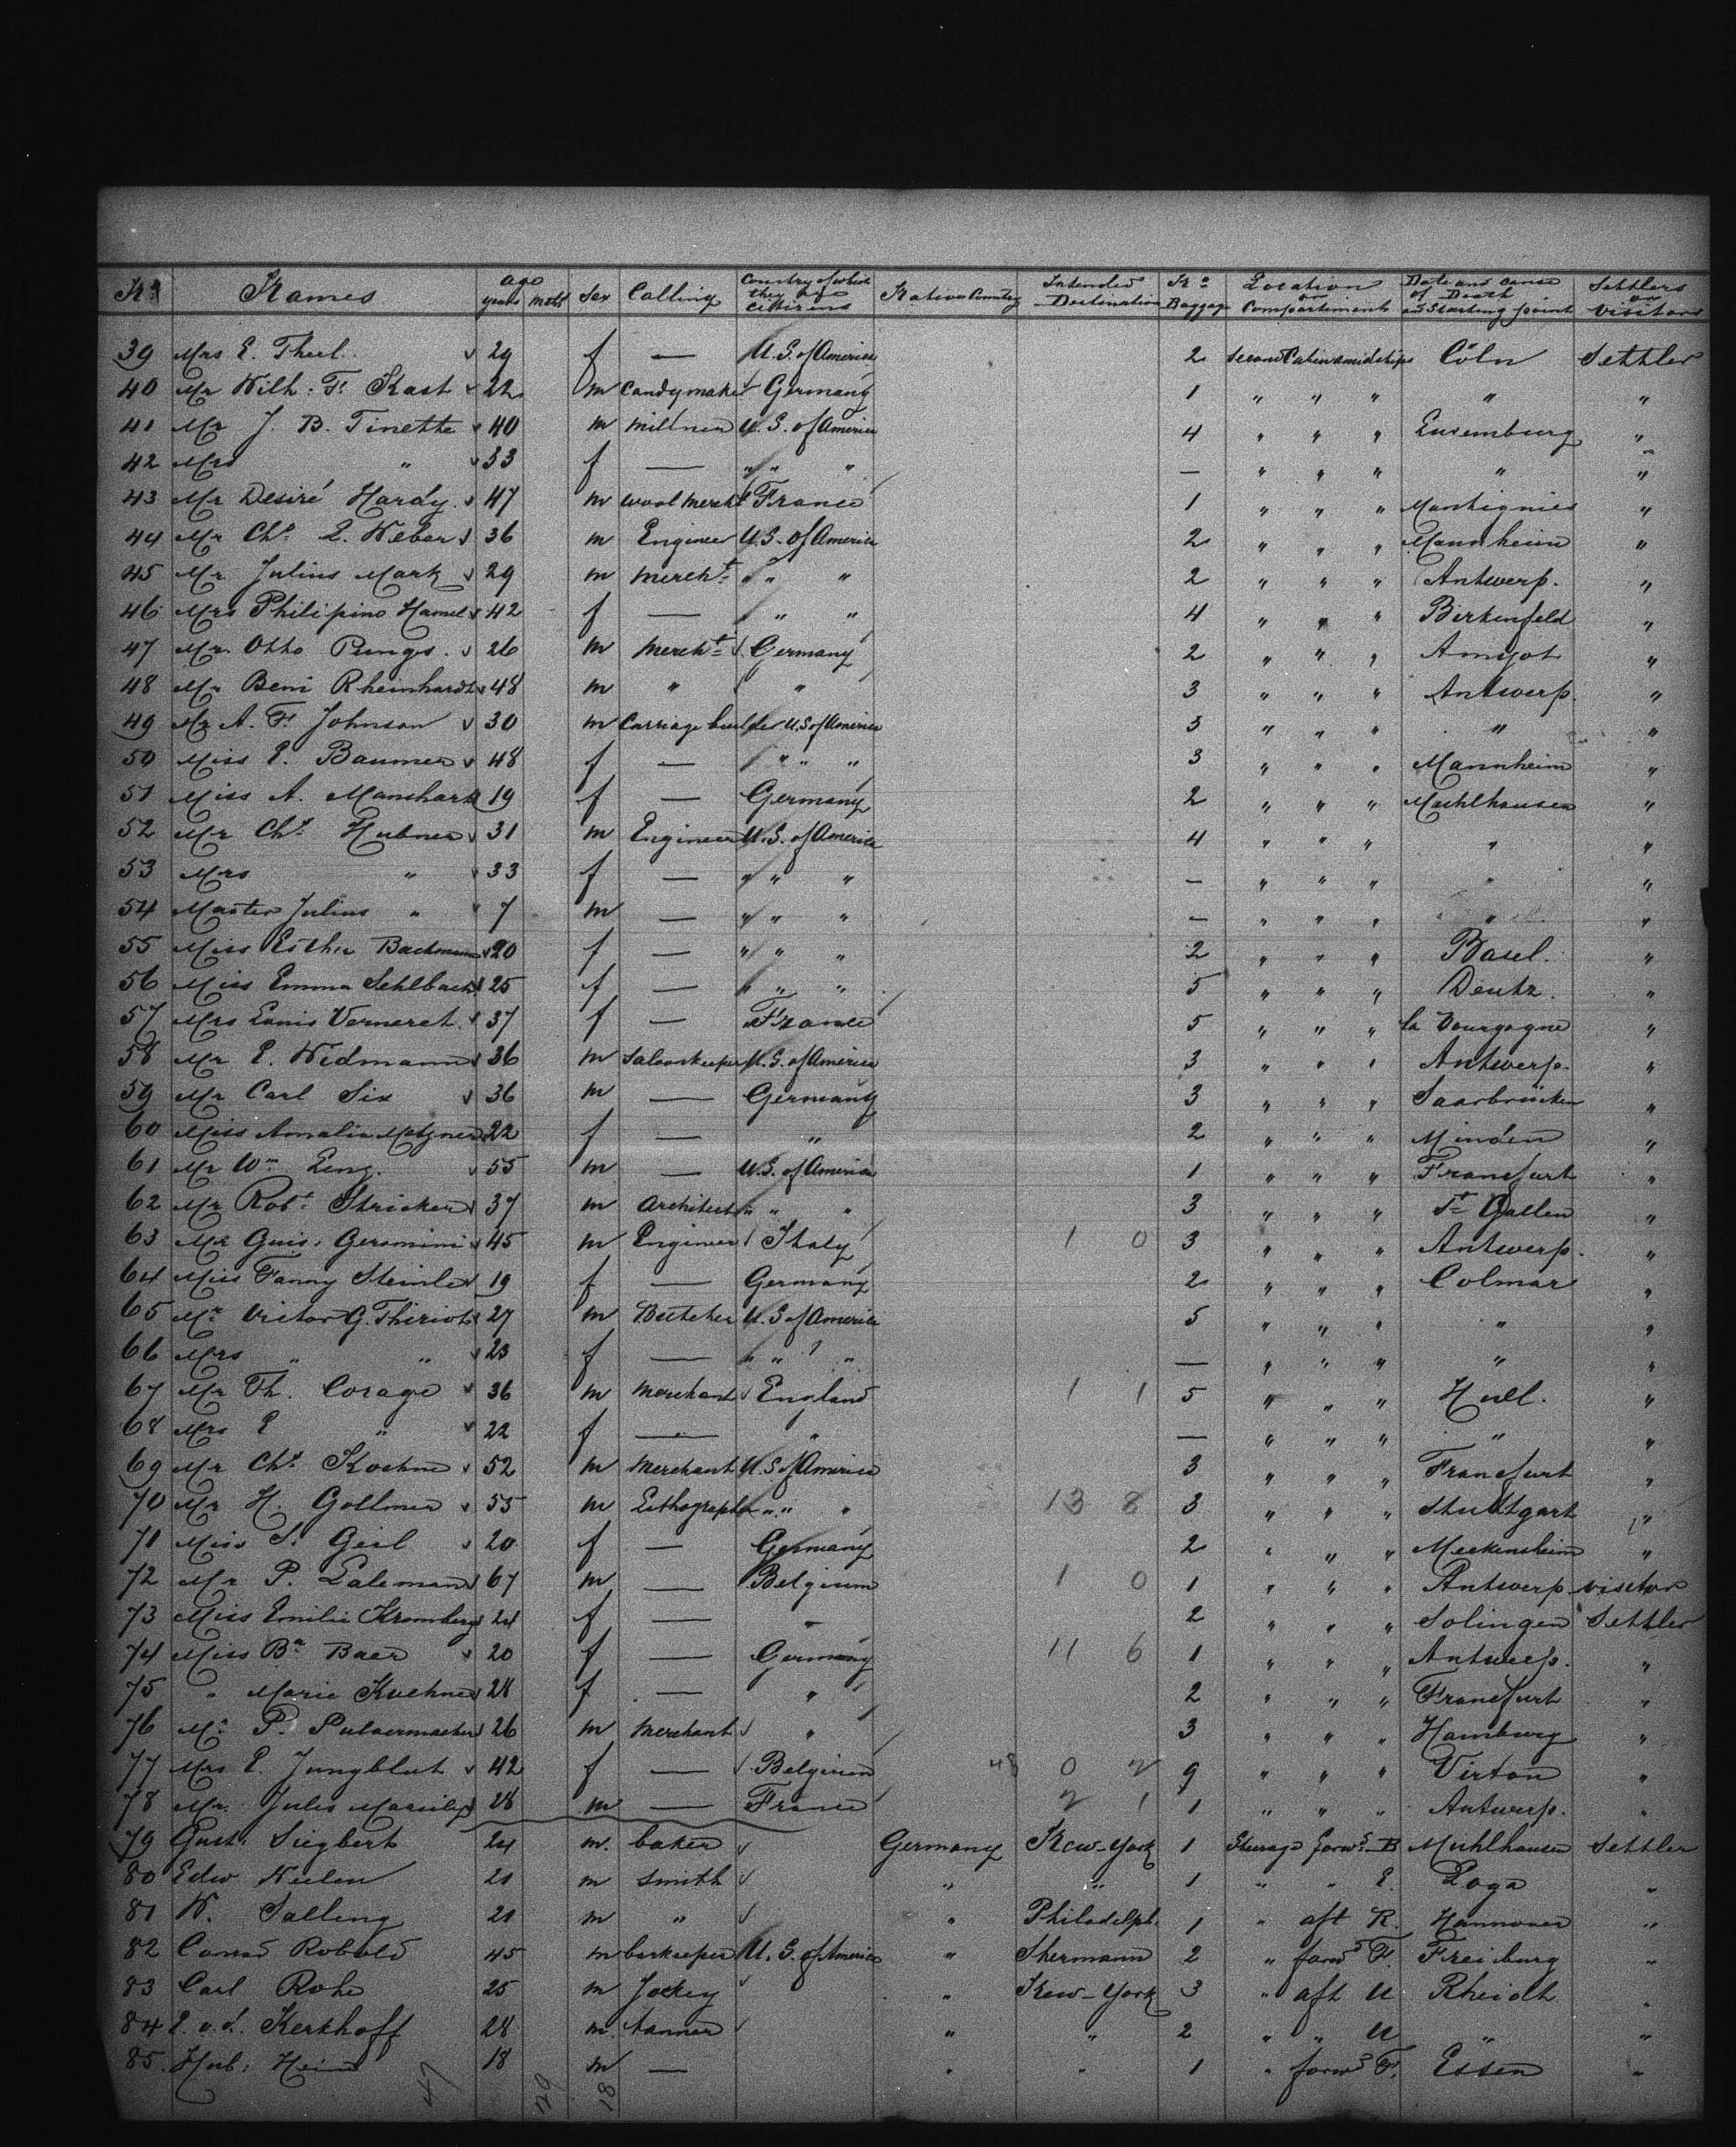 No Names age years mths Sex Calling Country of which they are citizens Native Country Intended Destination No Baggage Location or Compartiment Date and cause of Death and Starting point Settlers or Visitors
39 Mrs E. Theel 29 f — U.S. of America 2 Second Cabin amidships Cöln Settler
40 Mr Wilh. F. Kast 22 m Candymaker Germany 1 " " " " "
41 Mr J. B. Tinette 40 m U.S. of America 4 " " " Luxemburg "
42 Mrs " 33 f — " " " — " " " " "
43 Mr Desiré Hardy 47 m wool mercht France 1 " " " "
44 Mr Chs. E. Weber 36 m Engineer U.S. of America 2 " " " Mannheim "
45 Mr Julius Mark 29 m mercht " " " 2 " " " Antwerp. "
46 Mrs Philipine Hamel 42 f — " " " 4 " " " Birkenfeld "
47 Mr Otto Pungs. 26 m Mercht Germany 2 " " " "
48 Mr Beni Rheinhardt 48 m " " 3 " " " Antwerp. "
49 Mr A. F. Johnson 30 m Carriage builder U.S of America 3 " " " " "
50 Miss E. Baumer 48 f — " " " 3 " " " Mannheim "
51 Miss A. Manshart 19 f — Germany 2 " " " "
52 Mr Chs. Hubner 31 m Engineer U.S. of America 4 " " " " "
53 Mrs " 33 f — " " " — " " " " "
54 Master Julius " 7 m — " " " — " " " " "
55 Miss Esther Bachmann 20 f — " " " 2 " " " Basel. "
56 Miss Emma Sehlbach 25 f — " " " 5 " " " Deutz. "
57 Mrs Verneret. 37 f — France 5 " " " la Bourgogne "
58 Mr E. Widmann 36 m Saloonkeeper U.S. of America 3 " " " Antwerp. "
59 Mr Carl Six 36 m — Germany 3 " " " Saarbrücken "
60 Miss Amalia Metzner 22 f — " 2 " " " Minden "
61 Mr Wm Leng. 55 m — U.S. of America 1 " " " Francfurt "
62 Mr Robt. Stricker 37 m Architect " " " 3 " " " St Gallen "
63 Mr Guis. Geromini 45 m Engineer Italy 1 0 3 " " " Antwerp. "
64 Miss Fanny Steinle 19 f — Germany 2 " " " Colmar "
65 Mr Victor G. Thiriot 27 m Butcher U.S of America 5 " " " " "
66 Mrs " " 23 f — " " " — " " " " "
67 Mr Th. Corage 36 m Merchant England 1 1 5 " " " Hull. "
68 Mrs E " 22 f — " — " " " " "
69 Mr Chs. Koehne 52 m Merchant U.S of America 3 " " " Francfurt "
70 Mr H. Gollmer 55 m Lithograph " " " 13 8 3 " " " Stuttgart "
71 Miss S. Geil 20 f — Germany 2 " " " Meckensheim "
72 Mr P. Laleman 67 m — Belgium 1 0 1 " " " Antwerp. visitor
73 Miss Emilie Kromberg 24 f — " 2 " " " Solingen Settler
74 Miss Ba Baer 20 f — Germany 11 6 1 " " " Antwerp. "
75 " Marie Kuehne 28 f — " 2 " " " Francfurt "
76 Mr P. Pulvermacher 26 m Merchant " 3 " " " Hamburg "
77 Mrs E. Jungblut 42 f — Belgium 48 0 2 9 " " " Virton "
78 Mr. Jules 28 m — France 2 1 1 " " " Antwerp. "
79 Gust. Siegbert 24 m. baker Germany New-York 1 Steerage forwd. B Muhlhausen Settler
80 Edw Nielen 21 m smith " " 1 " " E. Loga "
81 W. Salling 21 m " " Philadelph. 1 " aft R. Hannover "
82 Conrad Robold 45 m barkeeper U.S. of America " Shermann 2 " forwd F. Freiburg "
83 Carl Rohe 25 m Jockey " New-York 3 " aft U Rheidt "
84 E. v. d. Kerkhoff 28 m. tanner " " 2 " " U " "
85. Hub. Heim 18 m — " " 1 " forwd F. Essen "
47 29 18